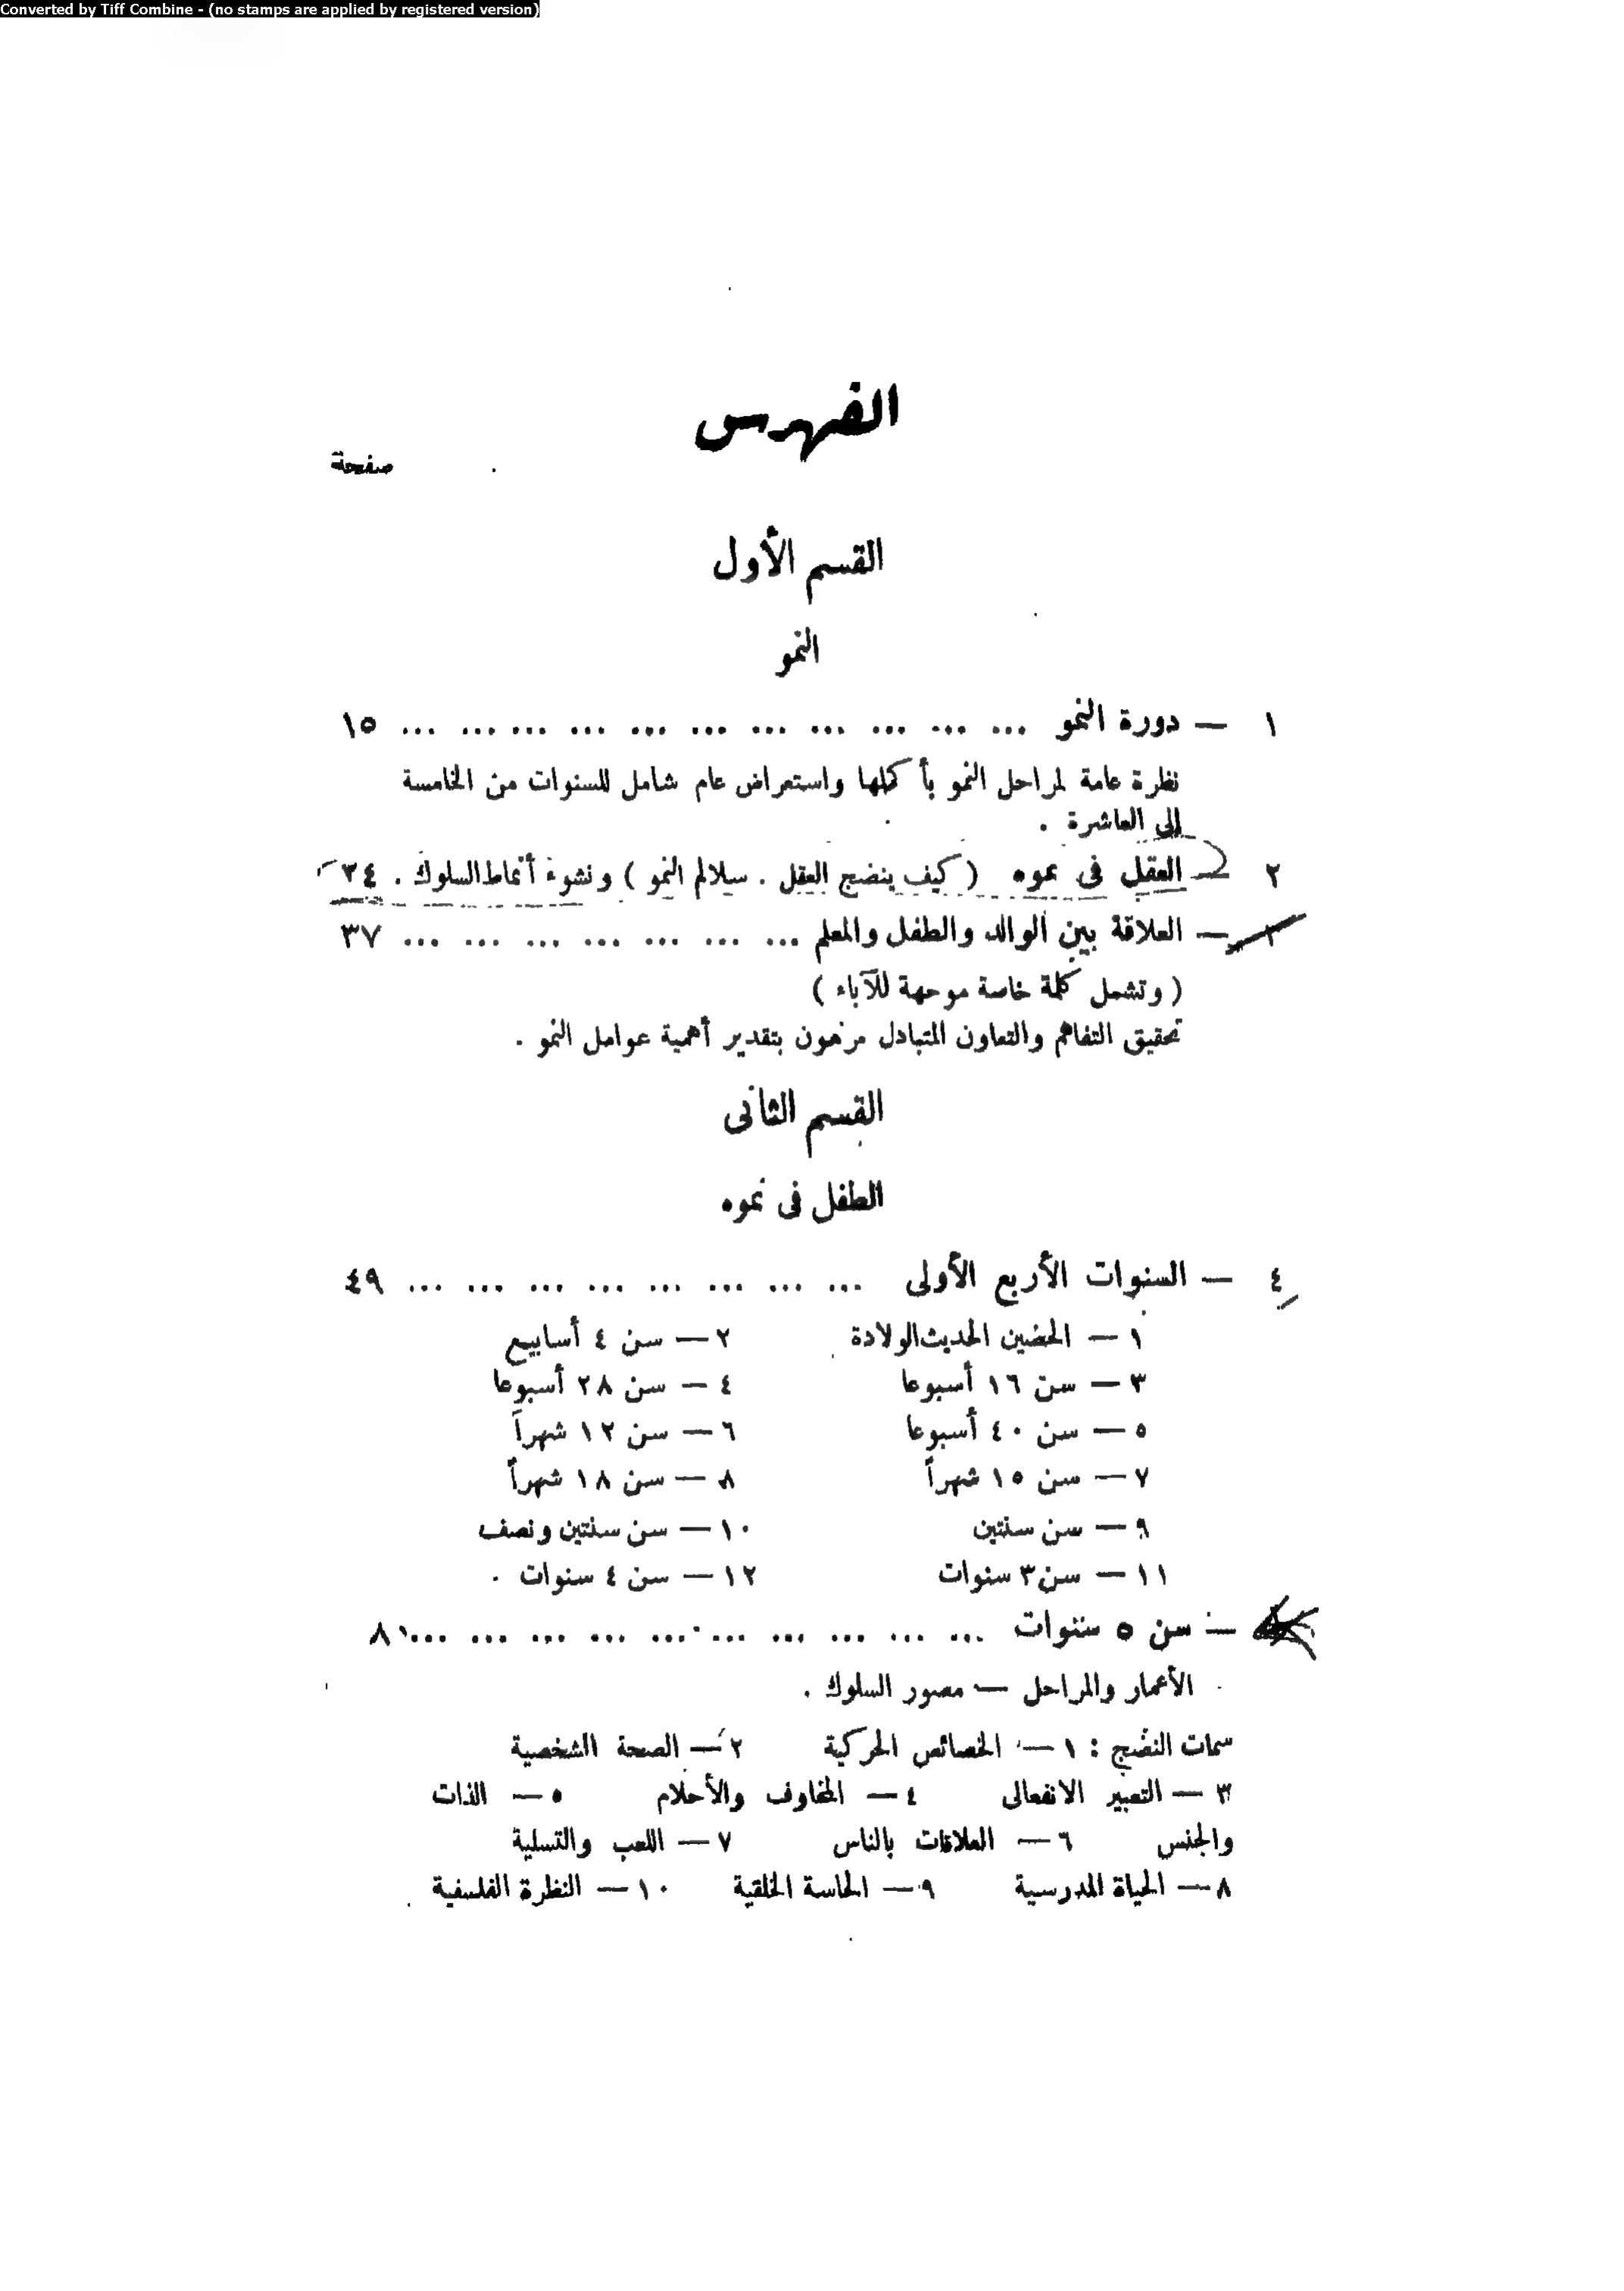 Converted by Tiff Combine - (no stamps are applied by registered version)
الفهرس
صفحة
القسم الأول
النمو
١ — دورة النمو ... ... ... ... ... ... ... ... ... ... ... ١٥
نظرة عامة لمراحل النمو بأكملها واستعراض عام شامل للسنوات من الخامسة
إلى العاشرة .
٢ — العقل فى نموه ( كيف ينضج العقل . سلالم النمو ) ونشوء أنماط السلوك . ٣٤
— العلاقة بين الوالد والطفل والمعلم ... ... ... ... ... ... ... ٣٧
( وتشمل كلمة خاصة موجهة للآباء )
تحقيق التفاهم والتعاون المتبادل مرهون بتقدير أهمية عوامل النمو .
القسم الثانى
الطفل فى نموه
٤ — السنوات الأربع الأولى ... ... ... ... ... ... ... ... ٤٩
١ — الحضين الحديث الولادة ٢ — سن ٤ أسابيع
٣ — سن ١٦ أسبوعا ٤ — سن ٢٨ أسبوعا
٥ — سن ٤٠ أسبوعا ٦ — سن ١٢ شهراً
٧ — سن ١٥ شهراً ٨ — سن ١٨ شهراً
٩ — سن سنتين ١٠ — سن سنتين ونصف
١١ — سن ٣ سنوات ١٢ — سن ٤ سنوات .
— سن ٥ سنوات ... ... ... ... ... ... ... ... ... ... ٨٠
الأعمار والمراحل — مصور السلوك .
سمات النضج : ١ — الخصائص الحركية ٢ — الصحة الشخصية
٣ — التعبير الانفعالى ٤ — المخاوف والأحلام ٥ — الذات
والجنس ٦ — العلاقات بالناس ٧ — اللعب والتسلية
٨ — الحياة المدرسية ٩ — الحاسة الخلقية ١٠ — النظرة الفلسفية .